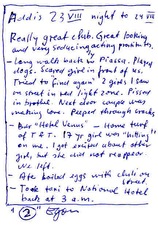 Addis 23 VIII night to 24 VIII
Really great club. Great looking
and very seducing acting prostitutes,
- Long walk back in Piassa. Played
dogs. Scared girl in front of us.
Tried to find again 2 girls I saw
on street in red light zone. Pissed
in brothel. Next door couple was
making love. Peeped through cracks.
- Bar "Hotel Venus" - Home turf
of T & T. 17 yr girl was "hitting"
on me. I got excited about other
girl, but she did not reappear.
We left.
- Ate boiled eggs with chili on
street
- Took taxi to National Hotel
back at 3 a.m.
"2"